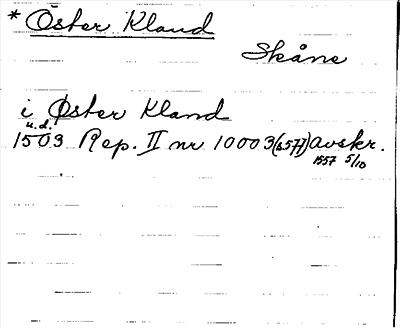 * Öster Kland
Skåne
i Øster Kland
u.d.
1503 Rep. II nr 10003 (s 577) Avskr.
1557 5/10